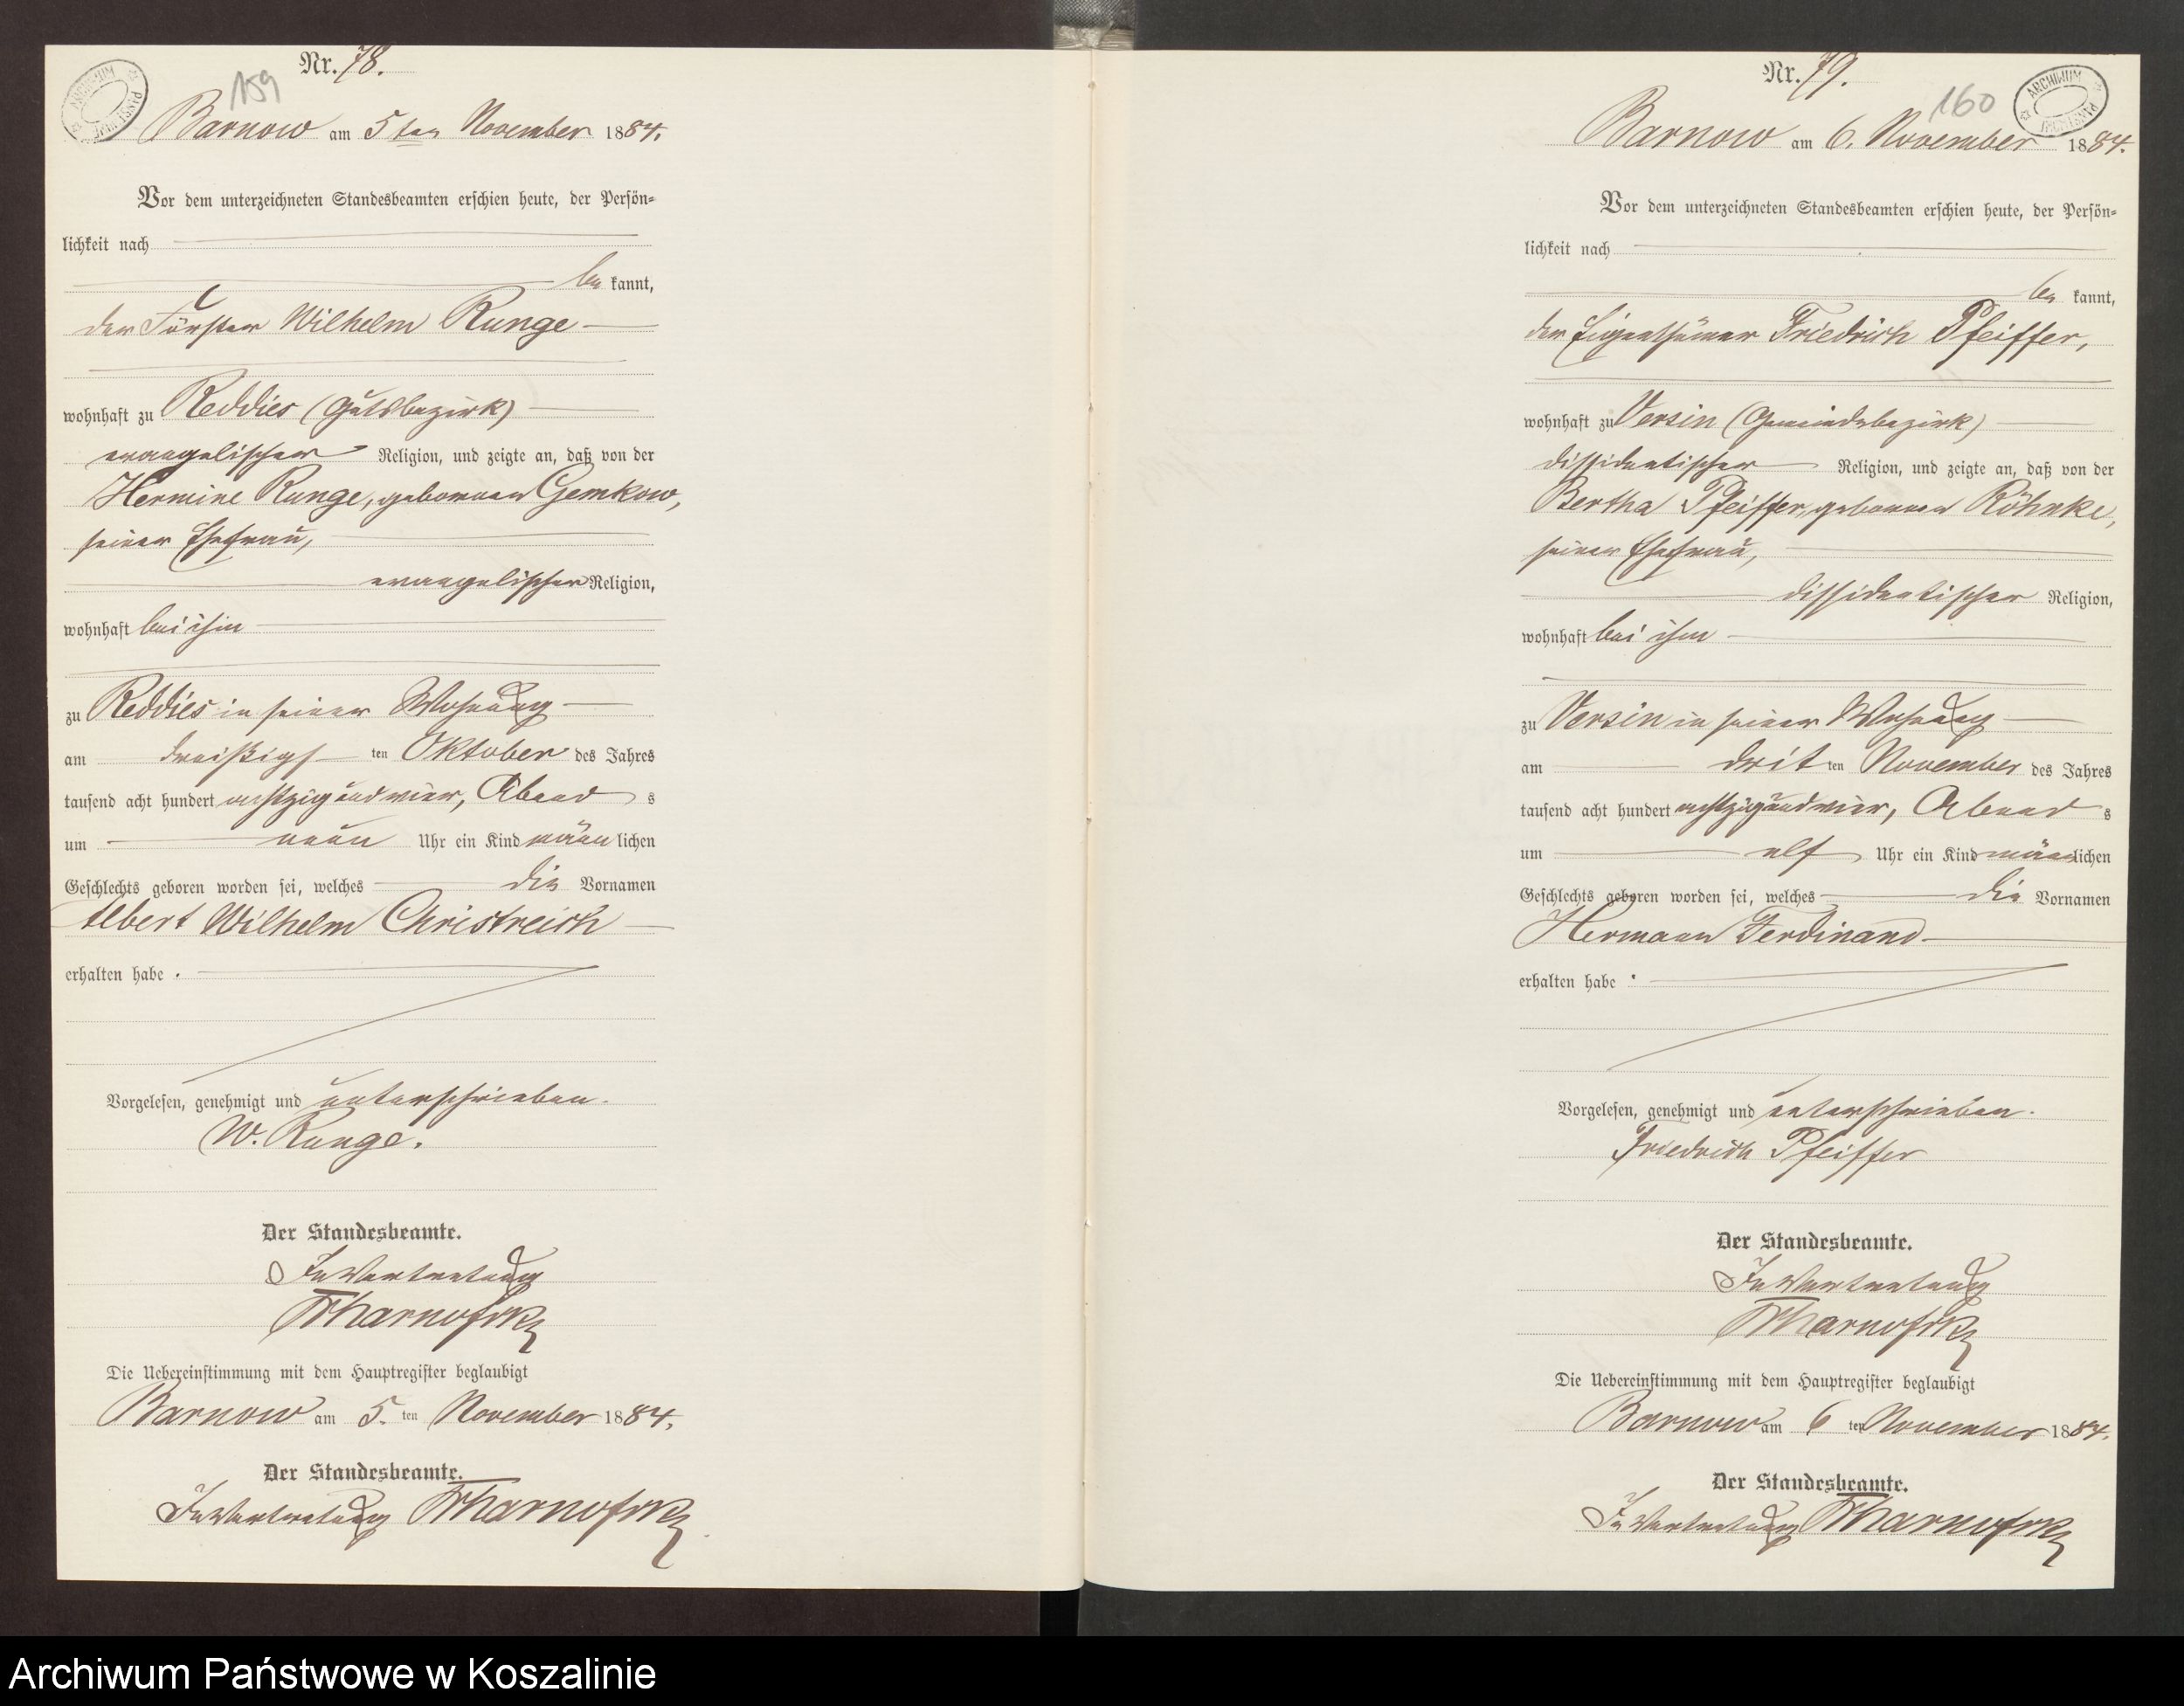 Nr. 78.
159
Barnow am 5ten November 1884.
Vor dem unterzeichneten Standesbeamten erschien heute, der Persön-
lichkeit nach
be kannt,
der Förster Wilhelm Runge
wohnhaft zu Reddies (Gutsbezirk)
evangelischer Religion, und zeigte an, daß von der
Hermine Runge, geborenen Gemkow,
seiner Ehefrau,
evangelischer Religion,
wohnhaft bei ihm
zu Reddies in seiner Wohnung
am dreißigsten Oktober des Jahres
tausend acht hundert achtzig und vier, Abends
um neun Uhr ein Kind männlichen
Geschlechts geboren worden sei, welches die Vornamen
Albert Wilhelm Christreich
erhalten habe.
Vorgelesen, genehmigt und unterschrieben.
W. Runge.
Der Standesbeamte.
In Vertretung
Die Uebereinstimmung mit dem Hauptregister beglaubigt
Barnow am 5.ten November 1884.
Der Standesbeamte.
In Vertretung
Nr. 79.
160
ARCHIWUM
Barnow am 6. November 1884.
Vor dem unterzeichneten Standesbeamten erschien heute, der Persön-
lichkeit nach
be kannt,
der Eigenthümer Friedrich Pfeiffer,
wohnhaft zu Versin (Gemeindebezirk)
dissidentischer Religion, und zeigte an, daß von der
Bertha Pfeiffer, geborenen Röhnke,
seiner Ehefrau,
dissidentischer Religion,
wohnhaft bei ihm
zu Versin in seiner Wohnung
am dritten November des Jahres
tausend acht hundert achtzig und vier, Abends
um elf Uhr ein Kind männlichen
Geschlechts geboren worden sei, welches die Vornamen
Hermann Ferdinand
erhalten habe.
Vorgelesen, genehmigt und unterschrieben.
Friedrich Pfeiffer
Der Standesbeamte.
In Vertretung
Die Uebereinstimmung mit dem Hauptregister beglaubigt
Barnow am 6 ten November 1884.
Der Standesbeamte.
In Vertretung
Archiwum Państwowe w Koszalinie